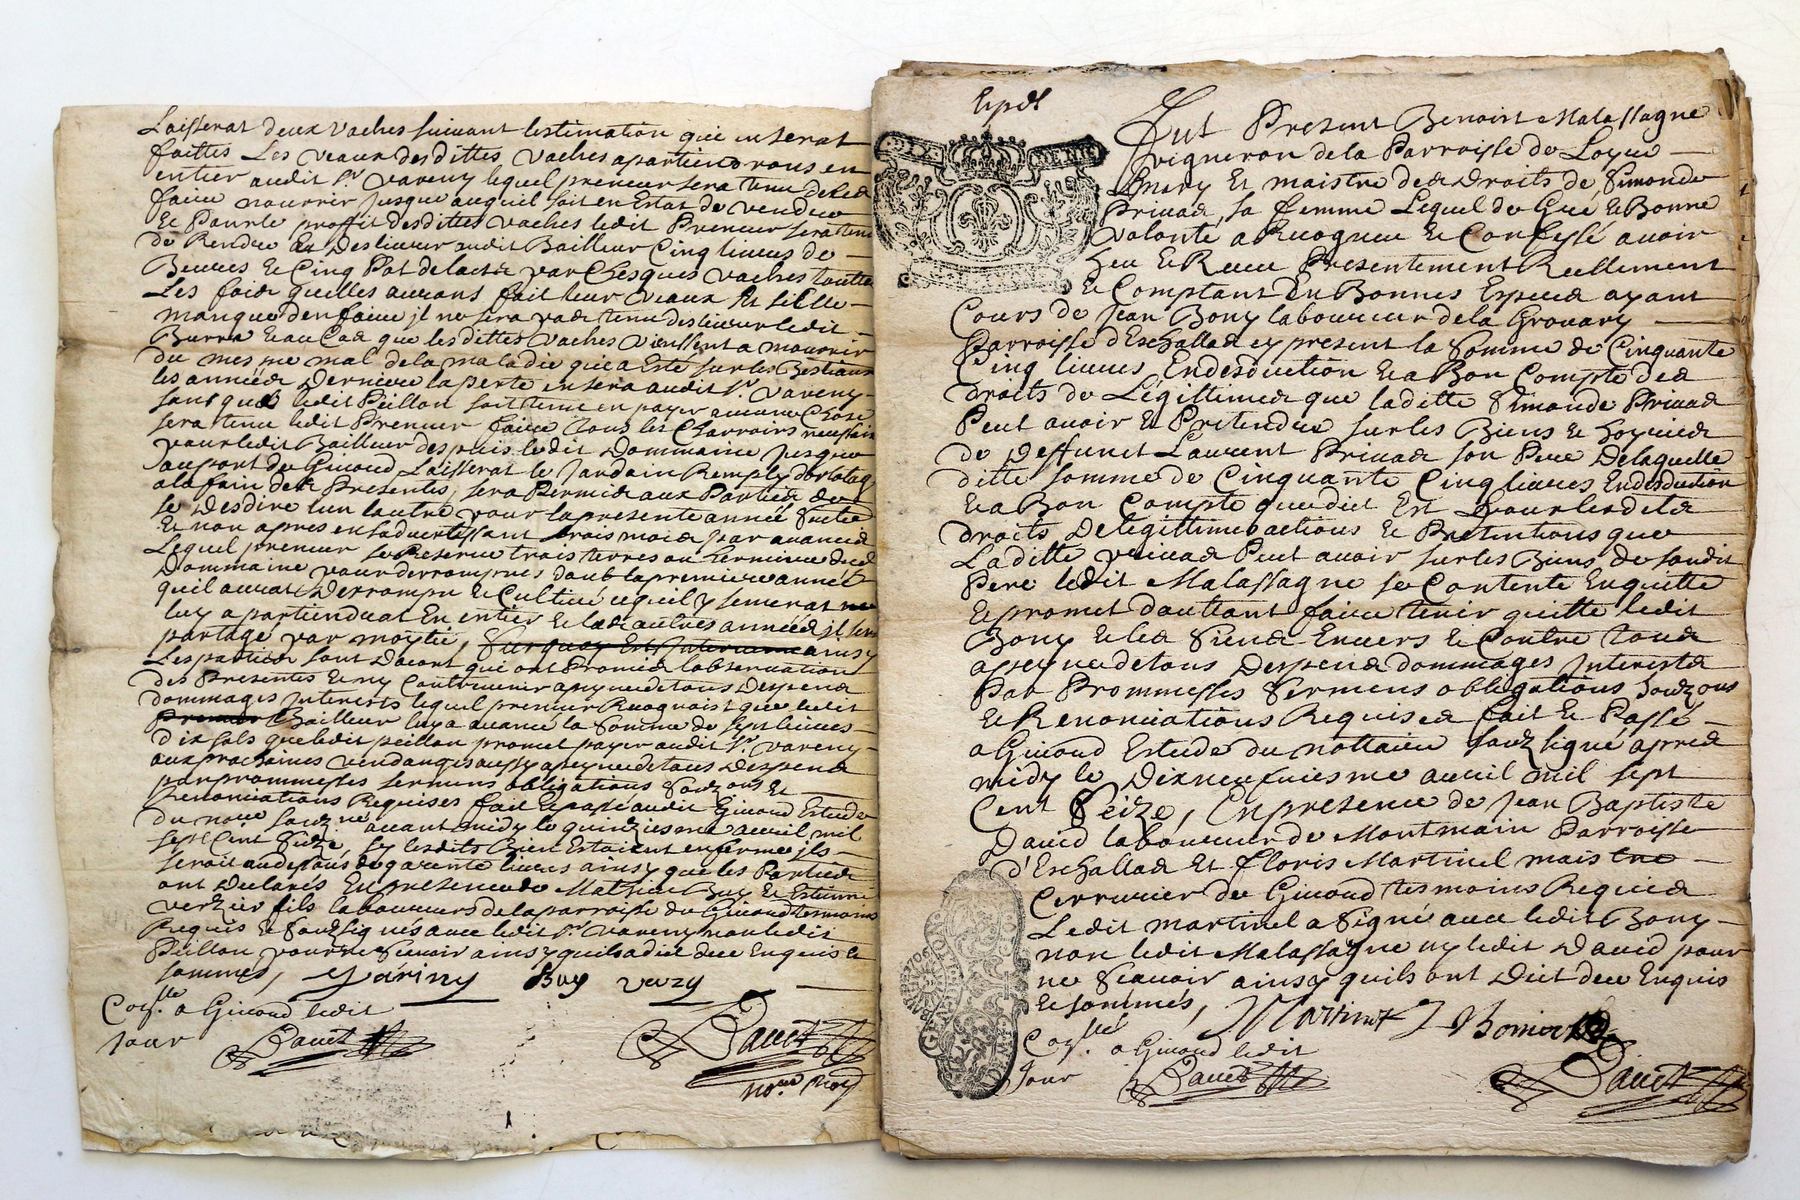 Laisserat deux vaches suivant lestimation qui en serat
faittes Les veaux des dittes vaches apartiendrons en
entier audit Sr. vareny lequel preneur sera tenu de les
faire nourrir jusque auquil soit en Estat de vendre
Et Pour le proffit des dittes vaches ledit Preneur sera tenu
de Rendre Et Deslivrer audit Bailleur Cinq livres de
Beurre Et Cinq Pot de laict par Chesques vaches toutte
Les fois quelles aurons fait leur veaux Et si Elle
manque den faire jl ne sera pas tenu deslivrer ledit
Burre Et au Cas que les dittes vaches vienssent a mourrir
du mesme mal de la maladie qui a Esté sur les Bestiaux
les années Derniere la perte en sera audit Sr. vareny
sans que ledit Peillon soit tenu en payer aucune Chose
sera tenu ledit Preneur faire tous les Charroirs
pour ledit Bailleur despuis ledit Dommaine jusque
au port de Givord Laisserat le jardain Remply
a la fain des Presentes, sera Permis aux Parties de
se Desdire lun lautre pour la presente année
Et non apres en sadvertissant trois mois par avance
Lequel preneur se Reserve trois terres ou
Dommaine pour derrompres dont la premiere année
quil aurat Derrompu Et Cultivé cequil y semerat
luy apartiendrat En entier Et les autres années jl sera
partagé par moytié, ainsy
Les parties sont Dacort qui ont Promis lobservation
des Presentes Et ny Contrevenir a peyne de tous Despens
dommages Interests lequel preneur Recognoist que ledit
Preneur Bailleur luy a avancé la somme de sept livres
dix sols que ledit peillon promet payer audit Sr. vareny
aux prochaines vendanges aussy a peyne de tous Despens
par prommesses sermens obligations
Renonciations Requises fait Et passé audit Givord Estude
du nore. avant midy le quinziesme avril mil
sept Cent Seize, sy lesdits Bien Estoient enfermé jls
seroit au dessous de garente livres ainsy que les Parties
ont Declarés En presence de Mathieu Buy Et Estienne
verzier fils laboureurs de la parroisse de Givord tesmoins
Requis Et soubsignés avec ledit Sr. vareny non ledit
Peillon pour ne scavoir ainsy quil a dit dece Enquis Et
sommés, Variny Buy verzy
a Givord ledit
Jour
Fut Present Benoist Malassagne
vigneron de la Parroisse de Loyre
Mary Et maistre des Droits de Simonde
Privas, sa femme Lequel de Gré Et Bonne
volonte a Recogneu Et Confessé avoir
heu Et Receu Presentement Reellement
Et Comptant En Bonnes Especes ayant
Cours de Jean Bony laboureur de la Grovary
Parroisse d'Eschallas cy present la Somme de Cinquante
Cinq livres En desduction Et a Bon Compte des
Droits de Légittimes que laditte Simonde Privas
Peut avoir Et Pretendre sur les Biens Et hoyries
de Deffunct Laurent Privas son Pere De laquelle
ditte somme de Cinquante Cinq livres En desduction
Et a Bon Compte que dict Est Pour les dets
droits De legittime actions Et Pretentions que
Laditte privas Peut avoir sur les Biens de soudit
Pere ledit Malassagne se Contente En quitte
Et promet dauttant faire tenir quitte ledit
Bony Et les Siens Envers Et Contre tous
a peyne de tous Despens dommages Interests
Par Prommesses Sermens obligations
Et Renonciations Requises fait Et Passé
a Givord Estude du nottaire soubsigné apres
midy le Dixneufviesme avril mil sept
Cent Seize, En presence de Jean Baptiste
David laboureur de Montmain Parroisse
d'Eschallas Et floris Martinel maistre
Cerrurier de Givord tesmoins Requis
Ledit martinel a Signé avec ledit Bony
non ledit Malassagne ny ledit David pour
ne Scavoir ainsy quils ont Dict dece Enquis
Et sommés,
a Givord ledit
Jour